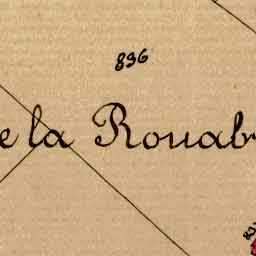 896
e la Rouab